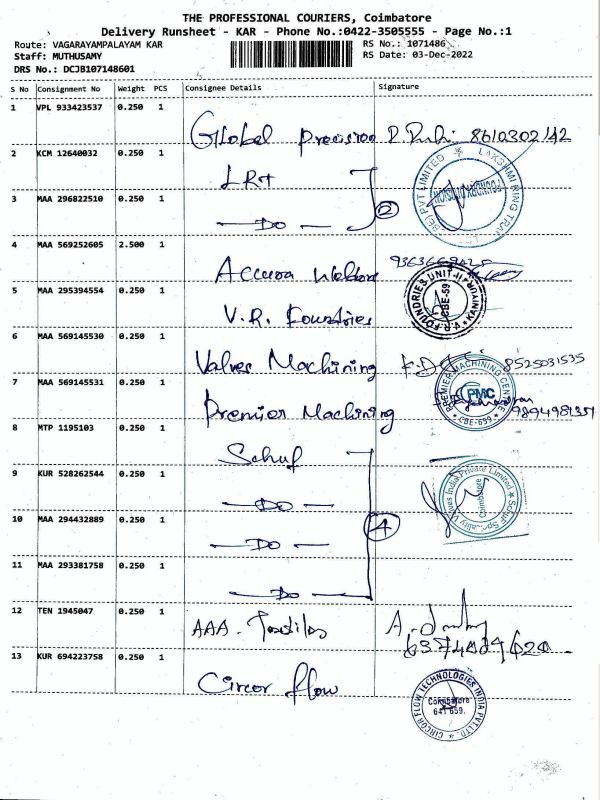 THE PROFESSIONAL COURIERS, Coimbatore
Delivery Runsheet - KAR - Phone No.:0422-3505555 - Page No.:1
Route: VAGARAYAMPALAYAM KAR
RS No.: 1071486
Staff: MUTHUSAMY
RS Date: 03-Dec-2022
DRS No.: DCJB107148601
S No Consignment No Weight PCS Consignee Details Signature
1 VPL 933423537 0.250 1
Global Precision 8610302142
2 KCM 12640032 0.250 1
LRT
3 MAA 296822510 0.250 1
— Do — 2
4 MAA 569252605 2.500 1
Accura
5 MAA 295394554 0.250 1
V.R. Foundries
V.R. FOUNDRIES UNIT-II KANIYUR CBE-59
6 MAA 569145530 0.250 1
Valves Machining 8525031535
7 MAA 569145531 0.250 1
Premier Machining 9894981351
PREMIER MACHINING CENTRE PMC CBE-659
8 MTP 1195103 0.250 1
Schuf
9 KUR 528262544 0.250 1
— Do —
Schuf Speciality Valves India Private Limited Coimbatore
10 MAA 294432889 0.250 1
— Do — 4
11 MAA 293381758 0.250 1
— Do —
12 TEN 1945047 0.250 1
AAA.
13 KUR 694223758 0.250 1
Circor flow
CIRCOR FLOW TECHNOLOGIES INDIA PVT.LTD. Coimbatore 641 659.